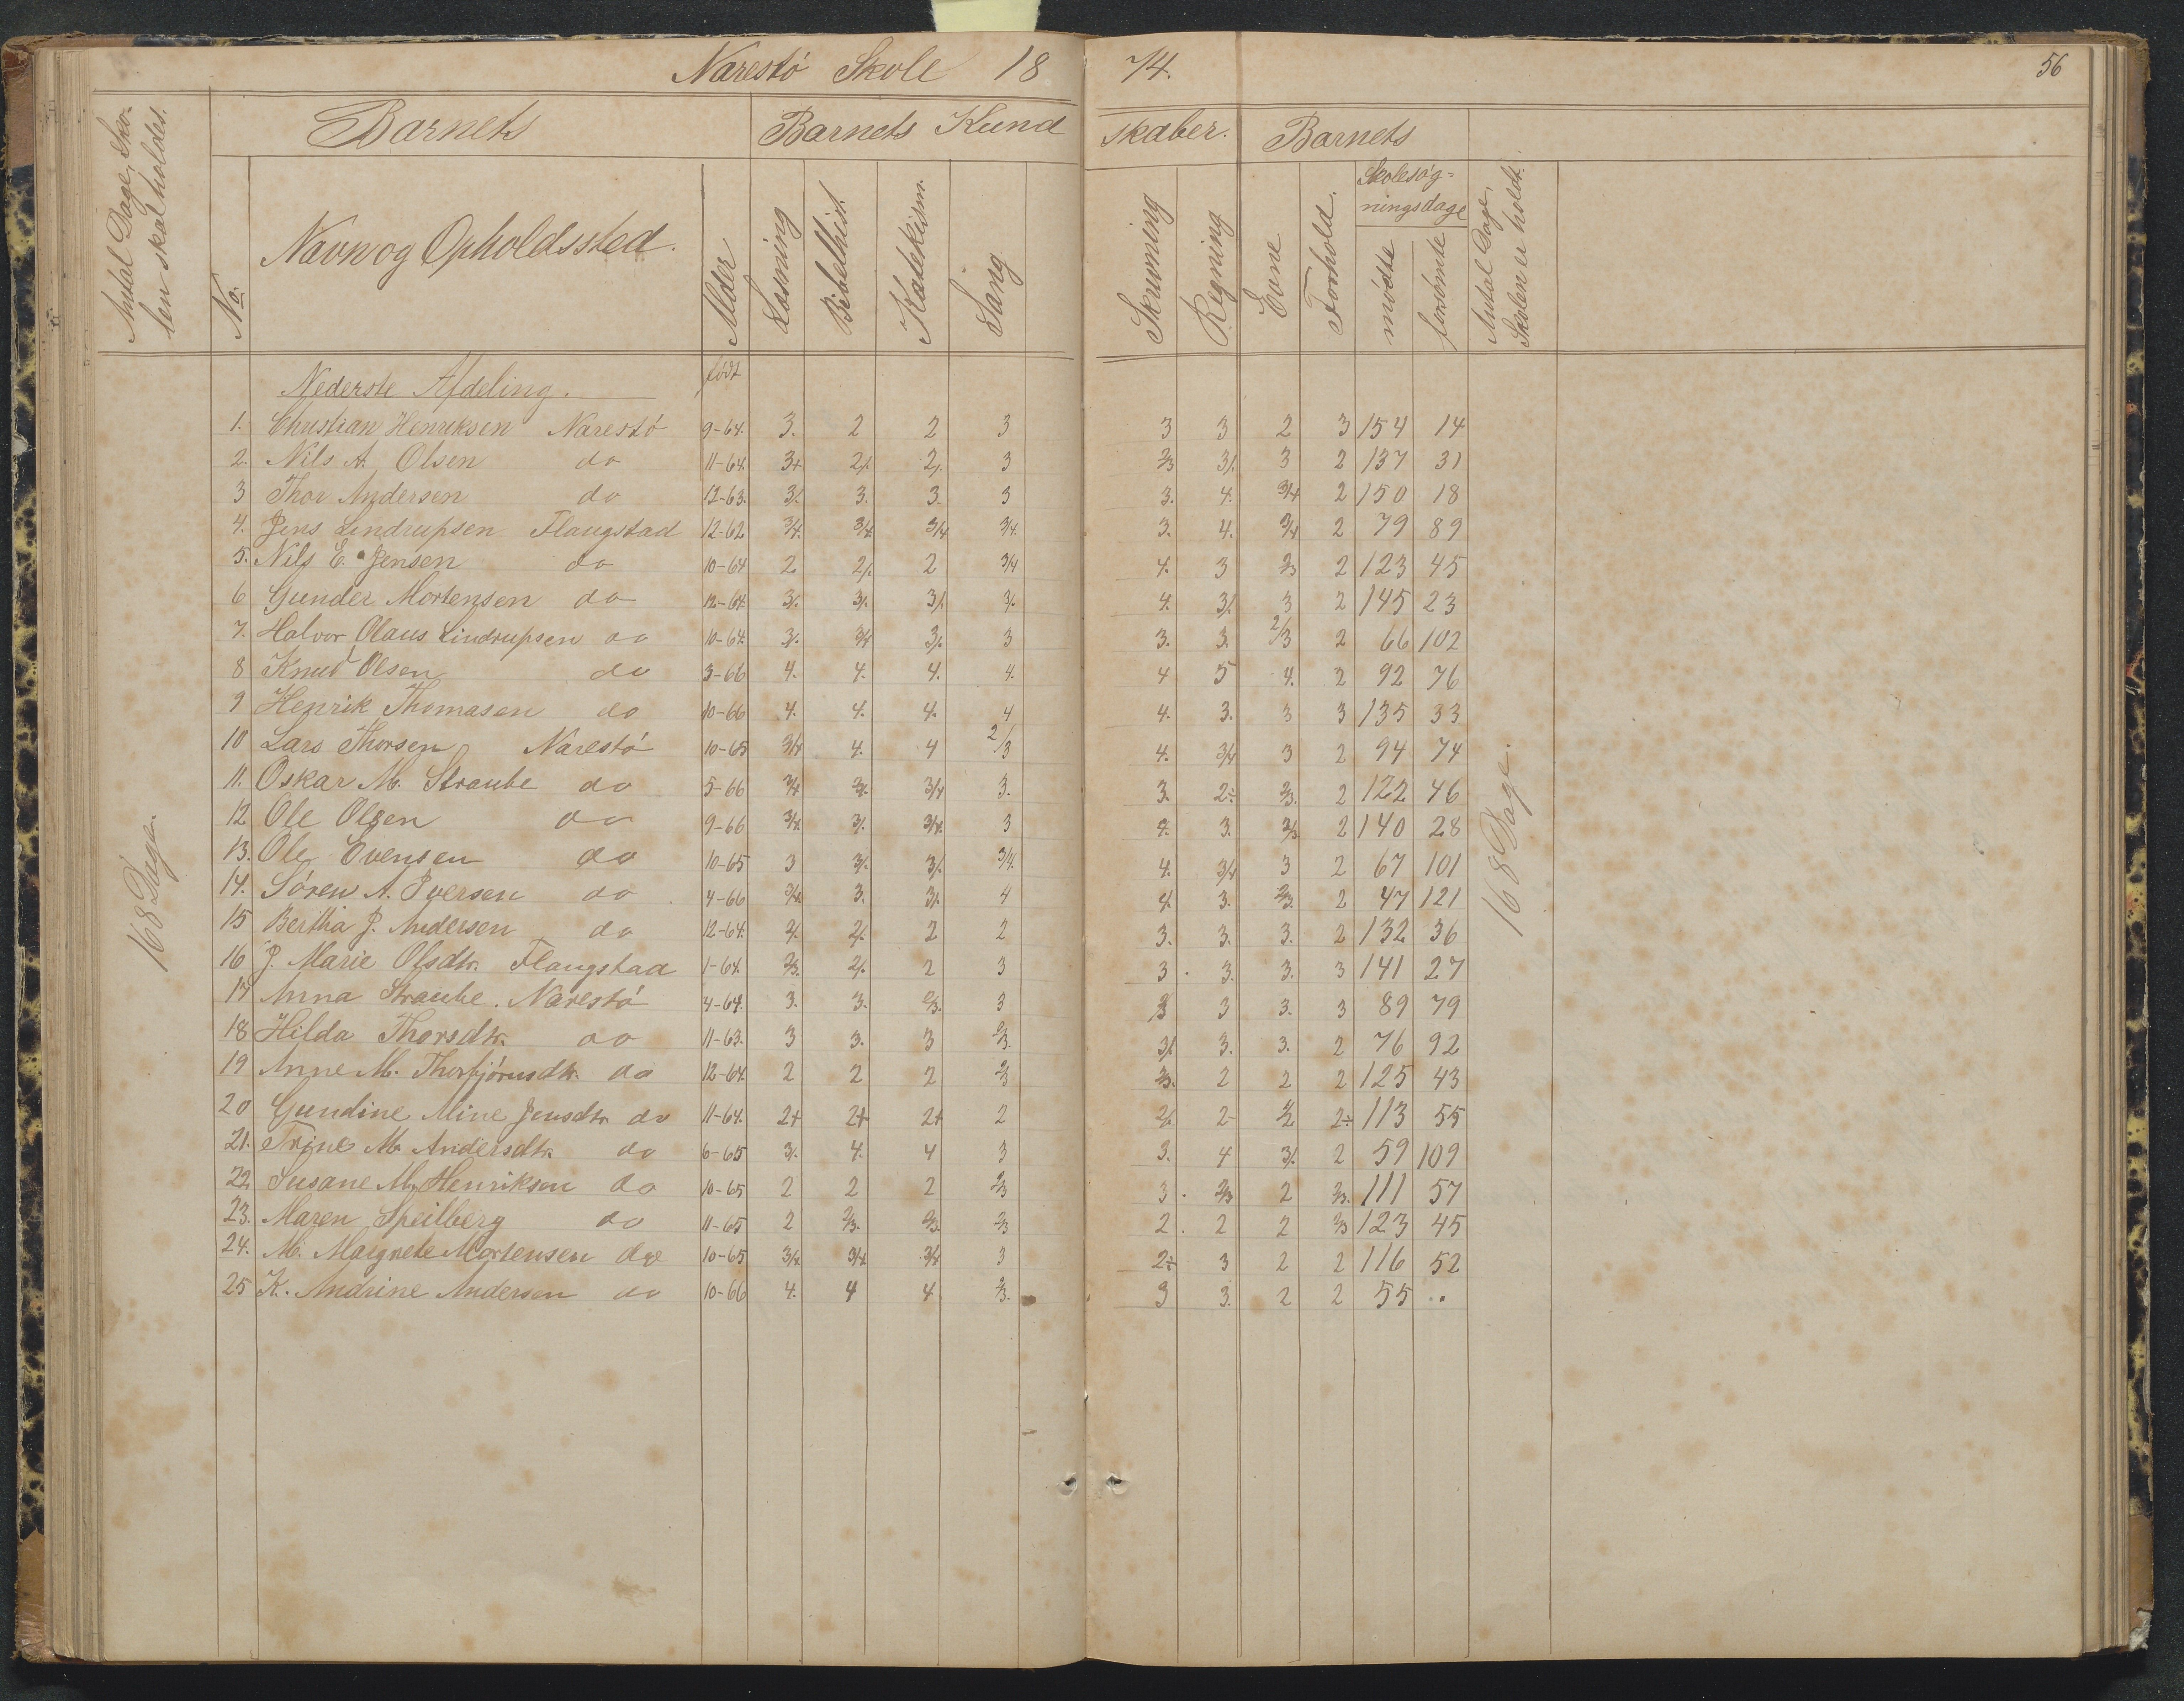 Narestö Skole 1874.
56
Antal Dage, Sko-
len skal holdes.
Barnets
Barnets Kundskaber.
Barnets
No.
Navn og Opholdssted.
Alder
Læsning
Bibelhist.
Katekism.
Sang
Skrivning
Regning
Evne
Forhold.
Skolesøg-
ningsdage
mødte
forsømte
Antal Dage,
Skolen er holdt.
Nederste Afdeling. født
1. Christian Henriksen Narestö 9-64. 3. 2 2 3 3 3 2 3 154 14
2. Nils A. Olsen do 11-64. 3+ 2/. 2/. 3 2/3 3/. 3 2 137 31
3 Thor Andersen do 12-63. 3/. 3. 3. 3 3. 4. 3/4 2 150 18
4. Jens Lindrupsen Flangstad 12-62 3/4. 3/4. 3/4 3/4. 3. 4. 3/4 2 79 89
5. Nils E. Jensen do 10-64 2. 2/. 2 3/4 4. 3 2/3 2 123 45
6 Gunder Mortensen do 12-64. 3/. 3/. 3/. 3/. 4. 3/. 3 2 145 23
7. Halvor Olaus Lindrupsen do 10-64. 3/. 3/4 3/. 3 3. 3. 2/3 2 66 102
8 Knud Olsen do 3-66 4. 4. 4. 4. 4 5 4. 2 92 76
9 Henrik Thomasen do 10-66 4. 4. 4. 4 4. 3. 3 3 135 33
10 Lars Thorsen Narestö 10-65 3/4 4. 4 2/3 4. 3/4 3 2 94 74
11. Oskar M. Straube do 5-66 3/4 3/. 3/4 3. 3. 2÷ 2/3. 2 122 46
12 Ole Olsen do 9-66 3/4. 3/. 3/4. 3 4. 3. 2/3 2 140 28
13. Ole Evensen do 10-65 3 3/. 3/. 3/4. 4. 3/4 3 2 67 101
14. Sören A. Iversen do 4-66 3/4. 3. 3/. 4 4. 3. 2/3. 2 47 121
15 Berthia J. Andersen do 12-64. 2/. 2/. 2 2 3. 3. 3. 2 132 36
16 J. Marie Olsdtr. Flangstad 1-64. 2/3. 2/. 2 3 3. 3. 3. 3 141 27
17 Anna Straube. Narestö 4-64. 3. 3. 2/3. 3 3 3 3. 3 89 79
18 Hilda Thorsdtr. do 11-63. 3 3. 3 2/3. 3/. 3. 3. 2 76 92
19 Anne M. Thorbjörnsdtr. do 12-64. 2 2 2 2/3 2/3. 2 2 2 125 43
20 Gundine Mine Jensdtr do 11-64. 2+ 2+ 2+ 2 2/. 2- 2÷ 113 55
21. Trine M. Andersdtr. do 6-65 3/. 4. 4 3 3. 4 3/. 2 59 109
22. Susane M. Henriksen do 10-65 2 2 2 2/3 3. 2/3 2 2/3. 111 57
23. Maren Speilberg do 11-65 2 2/3. 2/3. 2/3 2. 2 2 2/3 123 45
24. M. Margrete Mortensen do 10-65 3/4 3/4 3/4 3 2÷ 3 2 2 116 52
25 K. Andrine Andersen do 10-66 4. 4 4 2/3. 3 3. 2 2 55 .
168 Dage.
168 Dage.